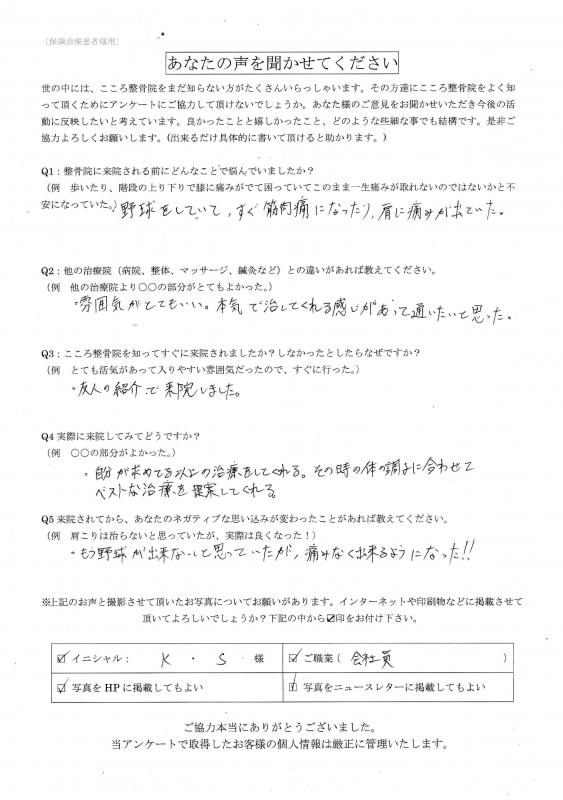 ［保険診療患者様用］
あなたの声を聞かせてください
世の中には、こころ整骨院をまだ知らない方がたくさんいらっしゃいます。その方達にこころ整骨院をよく知
って頂くためにアンケートにご協力して頂けないでしょうか。あなた様のご意見をお聞かせいただき今後の活
動に反映したいと考えています。良かったことと嬉しかったこと、どのような些細な事でも結構です。是非ご
協力よろしくお願いします。(出来るだけ具体的に書いて頂けると助かります。)
Q1：整骨院に来院される前にどんなことで悩んでいましたか？
（例　歩いたり、階段の上り下りで膝に痛みがでて困っていてこのまま一生痛みが取れないのではないかと不
安になっていた。）野球をしていて、すぐ筋肉痛になったり、肩に痛みが出ていた。
Q2：他の治療院（病院、整体、マッサージ、鍼灸など）との違いがあれば教えてください。
（例　他の治療院より〇〇の部分がとてもよかった。）
・雰囲気がとてもいい。本気で治してくれる感じがあって通いたいと思った。
Q3：こころ整骨院を知ってすぐに来院されましたか？しなかったとしたらなぜですか？
（例　とても活気があって入りやすい雰囲気だったので、すぐに行った。）
・友人の紹介で来院しました。
Q4 実際に来院してみてどうですか？
（例　〇〇の部分がよかった。）
・自分が求めてる以上の治療をしてくれる。その時の体の調子に合わせて
ベストな治療を提案してくれる。
Q5 来院されてから、あなたのネガティブな思い込みが変わったことがあれば教えてください。
（例　肩こりは治らないと思っていたが、実際は良くなった！）
・もう野球が出来ないと思っていたが、痛みなく出来るようになった!!
※上記のお声と撮影させて頂いたお写真についてお願いがあります。インターネットや印刷物などに掲載させて
頂いてよろしいでしょうか？下記の中から☑印をお付け下さい。
☑ イニシャル： K ・ S 様　☑ ご職業（ 会社員 ）
☑ 写真を HP に掲載してもよい　☑ 写真をニュースレターに掲載してもよい
ご協力本当にありがとうございました。
当アンケートで取得したお客様の個人情報は厳正に管理いたします。